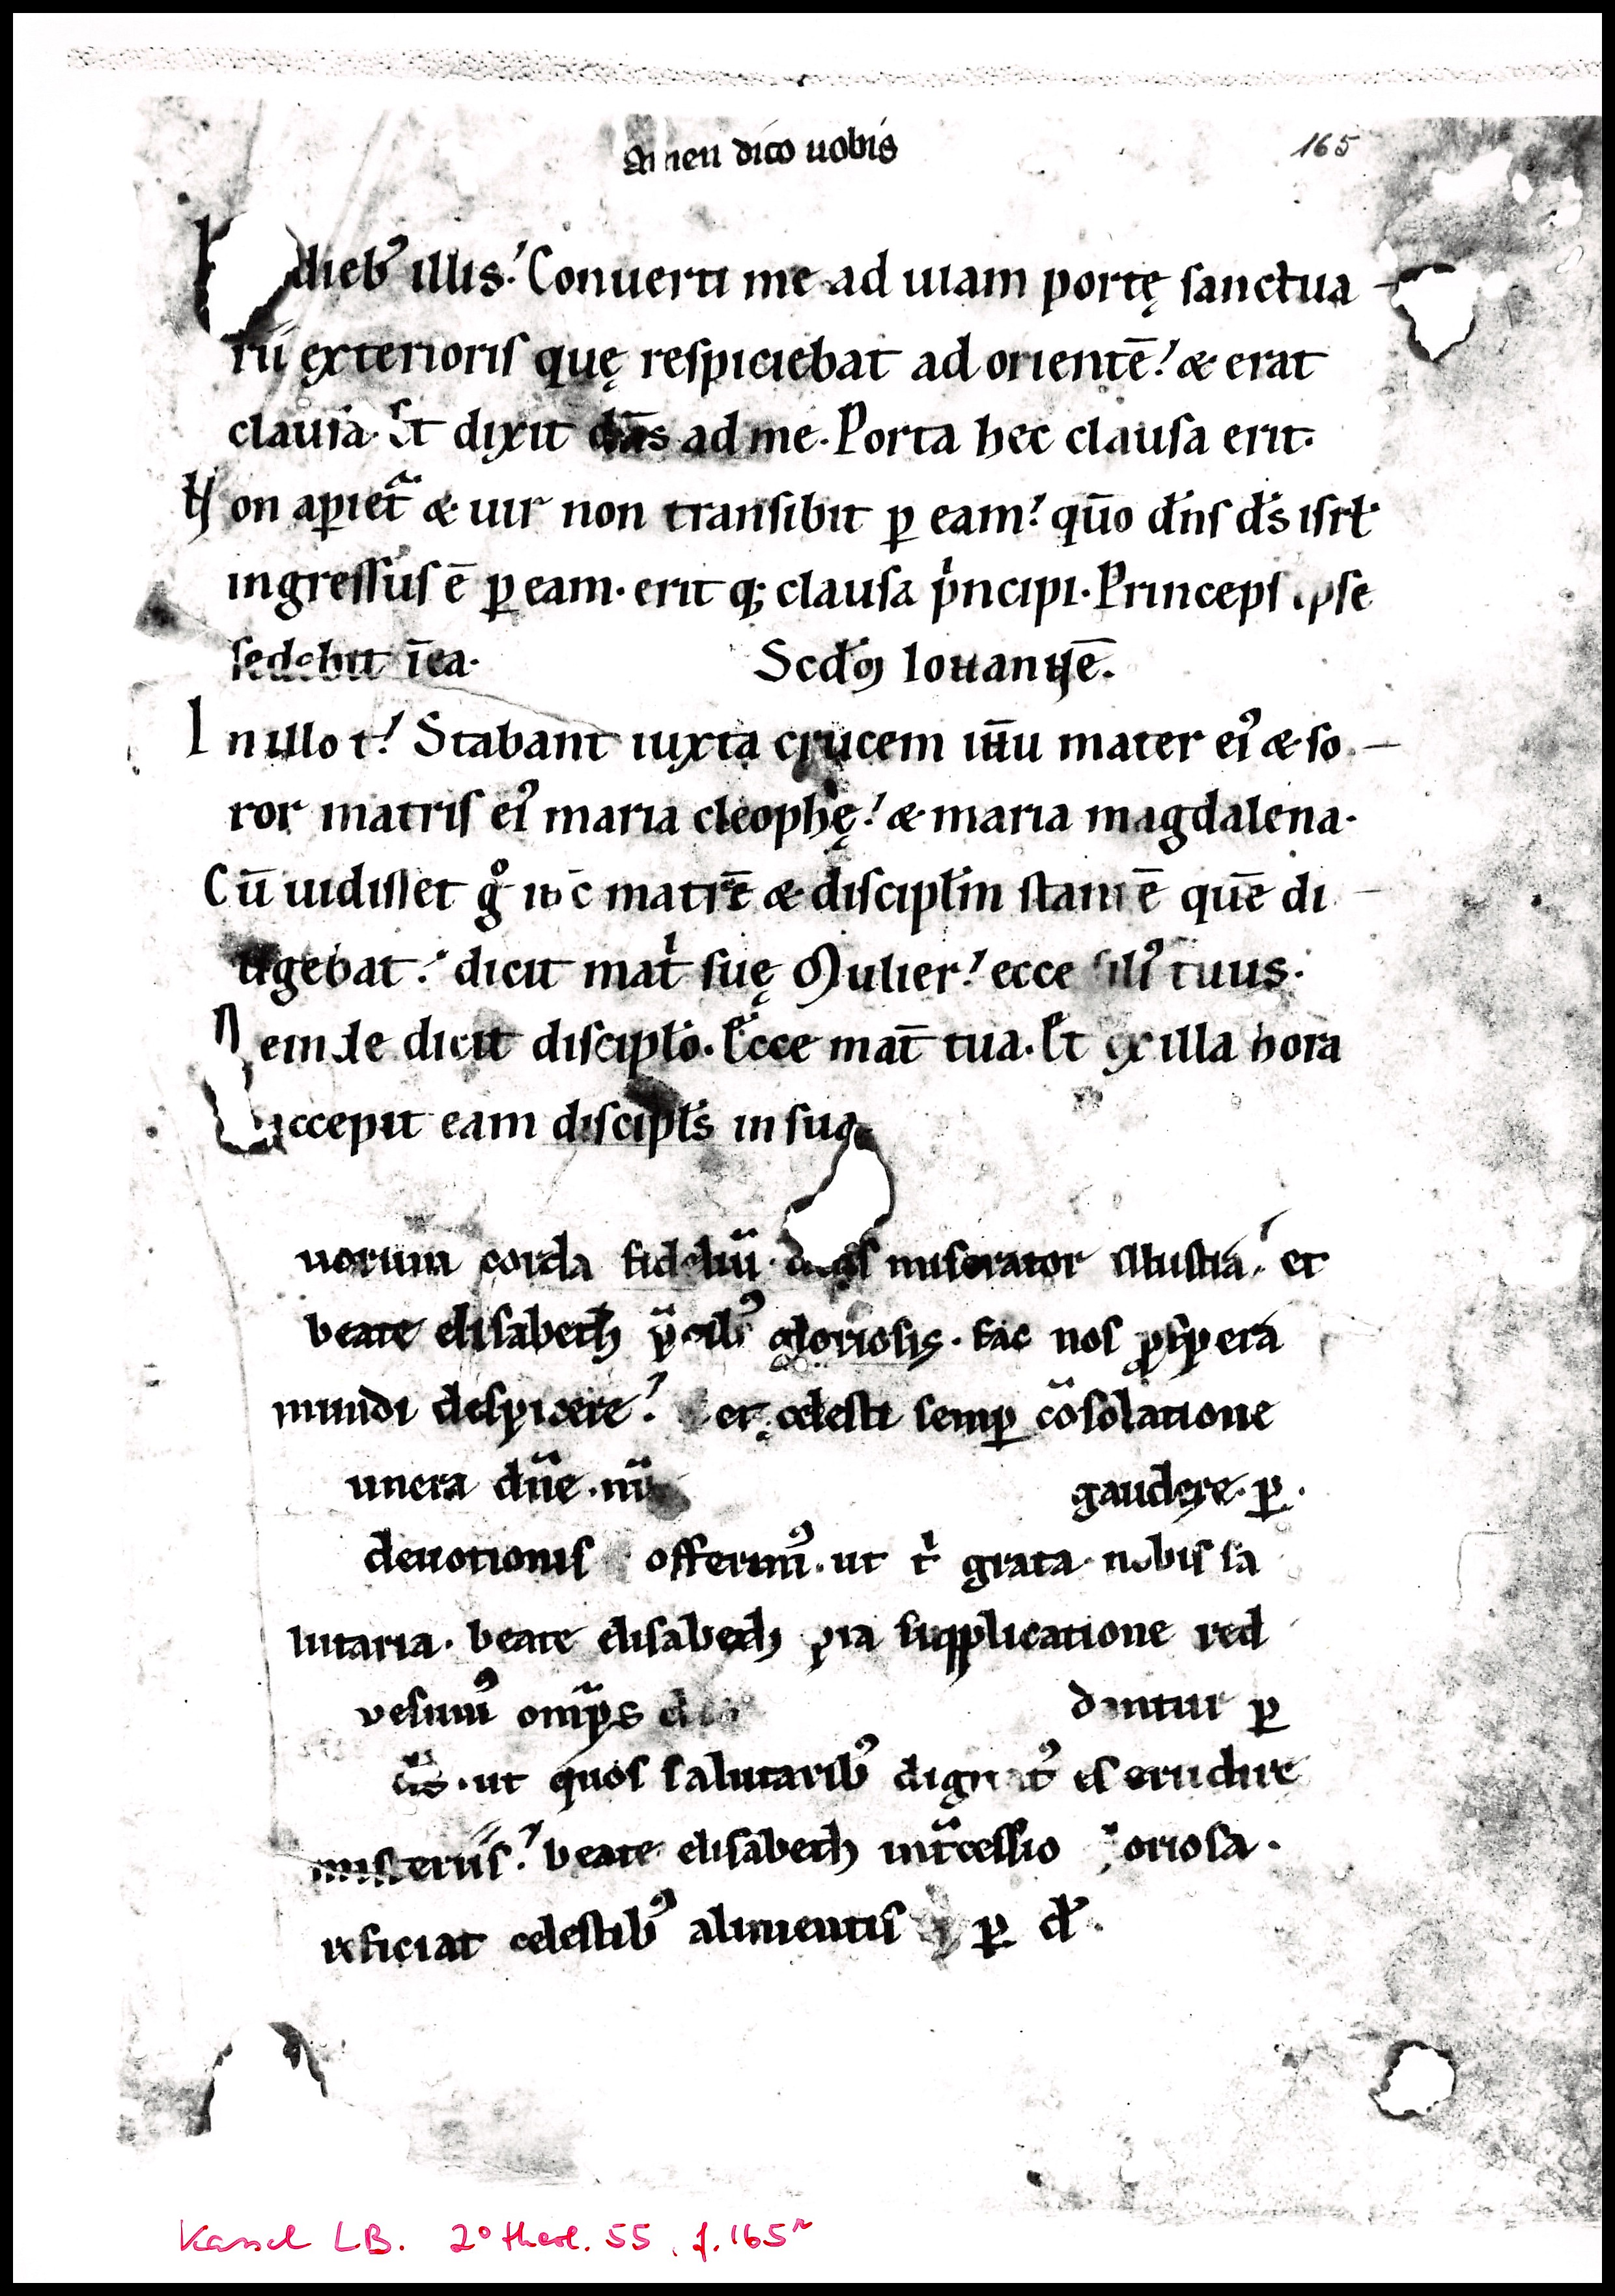 Amen dico uobis
165
dieb᾽ illis. Conuerti me ad uiam portę sanctua
rii exterioris quę respiciebat ad orientē. & erat
clausa. Et dixit dn̄s ad me. Porta hec clausa erit.
Non apiet̃ & uir non transibit ꝑ eam. qūo dn̄s ds̄ isrl̄
ingressus ē ꝑ eam. erit q; clausa pⁱncipi. Princeps ipse
sedebit ī ea. Scd̄m Iohannē.
In illo t. Stabant iuxta crucem ih̄u mater ei᾽ & so
ror matris ei᾽ maria cleophę. & maria magdalena.
Cū uidisset gͦ ih̄c matrē & discipl̄m stantē quē di
ligebat. dicit matⁱ suę Mulier. ecce fili᾽ tuus.
Deinde dicit discipl̄o. Ecce mat̄ tua. Et ex illa hora
accepit eam discipl̄s in sua
uorum corda fideliū ds̄ miserator illustra. et
beate elisabeth p̄cib᾽ gloriosis. fac nos ꝓspera
mundi despicere. et celesti semꝑ cōsolatione
unera dn̄e gaudere. ꝑ.
deuotionis offerim᾽. ut tⁱ grata. nobis sa
lutaria. beate elisabeth pia supplicatione red
vesum᾽ omp̄s dantur ꝑ
ds̄. ut quos salutarib᾽ dignat᾽ es erudire
misteriis. beate elisabeth int̄cessio oriosa.
reficiat celestib᾽ alimentis ꝑ d.
Kassel LB. 2° theol. 55, f. 165ʳ